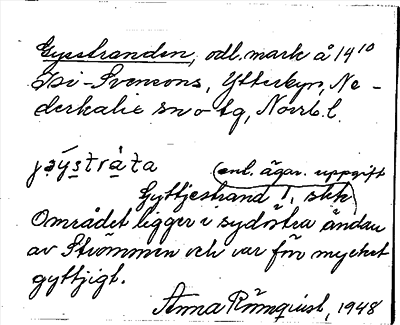 Gysstranden, odl. mark å 14¹⁰
Isi-Svensons, Ytterbyn, Ne-
derkalix sn o tg, Norrb. l.
jäystráta (enl. ägar. uppgift
Gyttjestrand
Området ligger i sydöstra ändan
av Strömmen och var för mycket
gyttjigt.
Anna Römquist, 1948